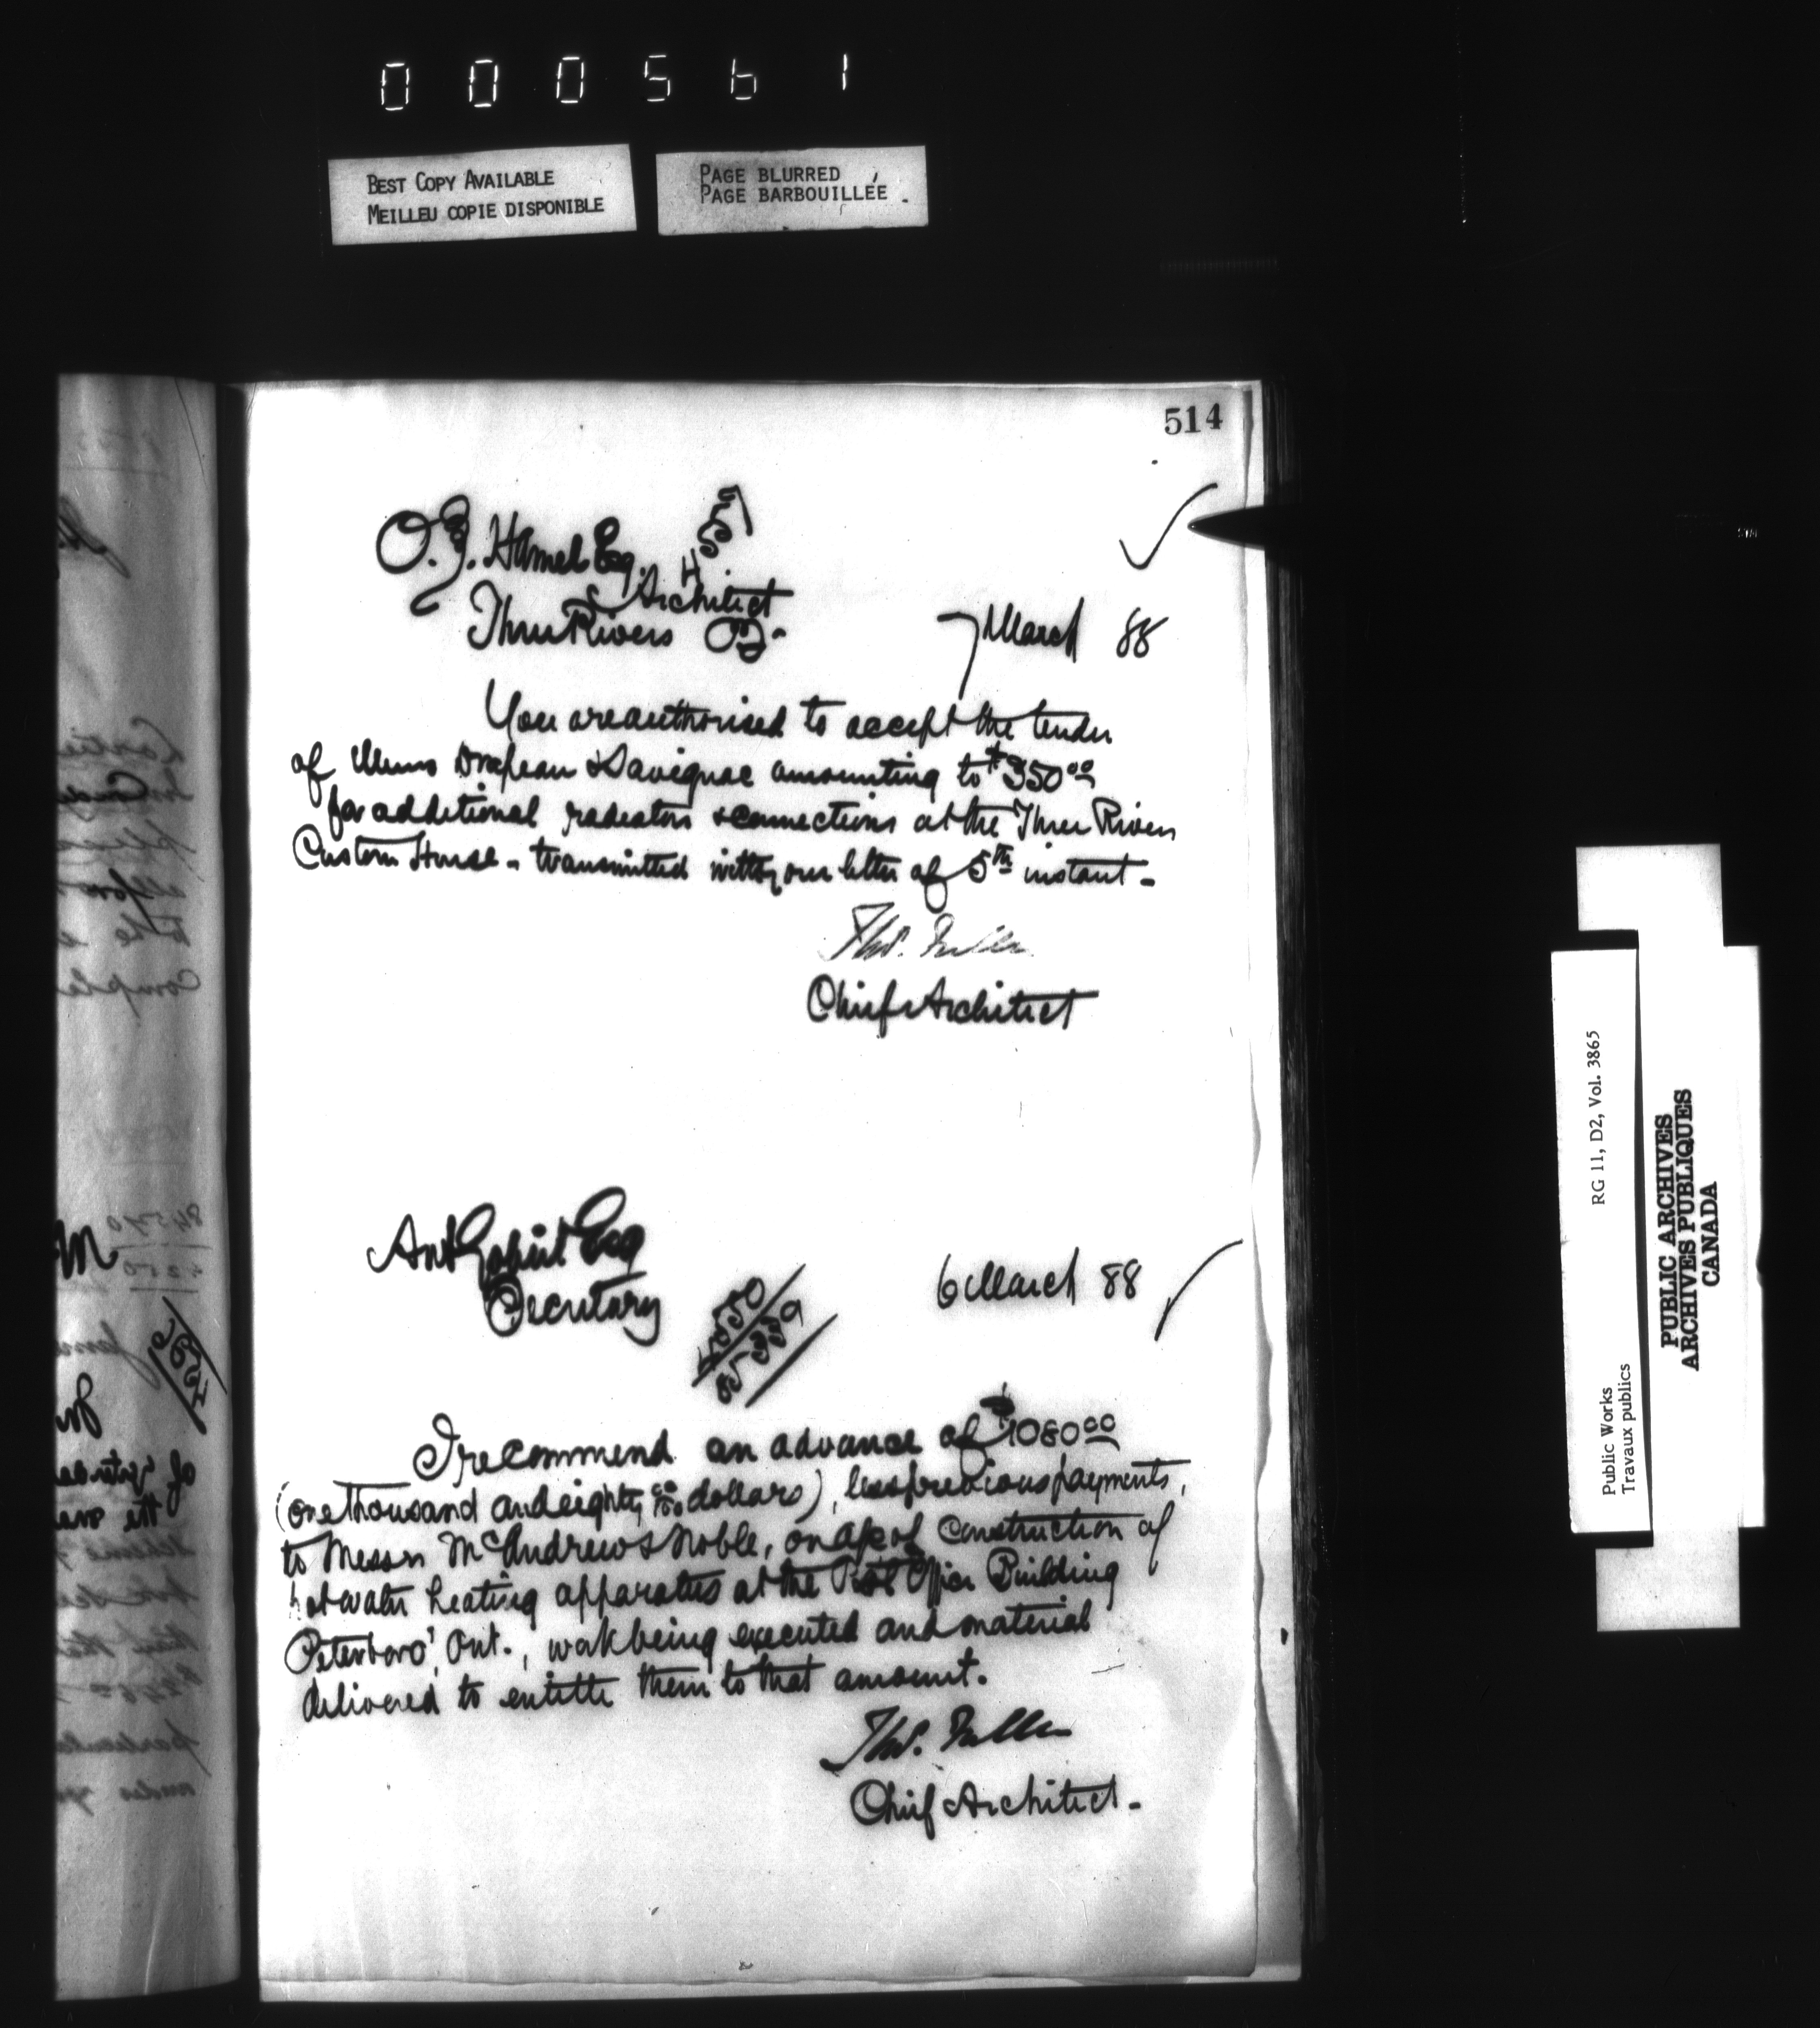 000561
BEST COPY AVAILABLE
MEILLEU COPIE DISPONIBLE
PAGE BLURRED
PAGE BARBOUILLÉE
514
O. Z. Hamel Esq.
Architect
Three Rivers P.Q.
7 March 88
You are authorised to accept the tender
of Messrs Drapeau & Savignac amounting to $350.00
for additional radiators & connections at the Three Rivers
Custom House - transmitted with your letter of 5th instant -
Thos. Fuller
Chief Architect
Ant Gobeil Esq
Secretary
6 March 88
85339
I recommend an advance of $1080.00
(one thousand and eighty 00/100 dollars), less previous payments,
to Messrs McAndrew & Noble, on a/c of construction of
hot water heating apparatus at the Post Office Building
Peterboro', Ont., work being executed and material
delivered to entitle them to that amount.
Thos. Fuller
Chief Architect -
RG 11, D2, Vol. 3865
Public Works
Travaux publics
PUBLIC ARCHIVES
ARCHIVES PUBLIQUES
CANADA